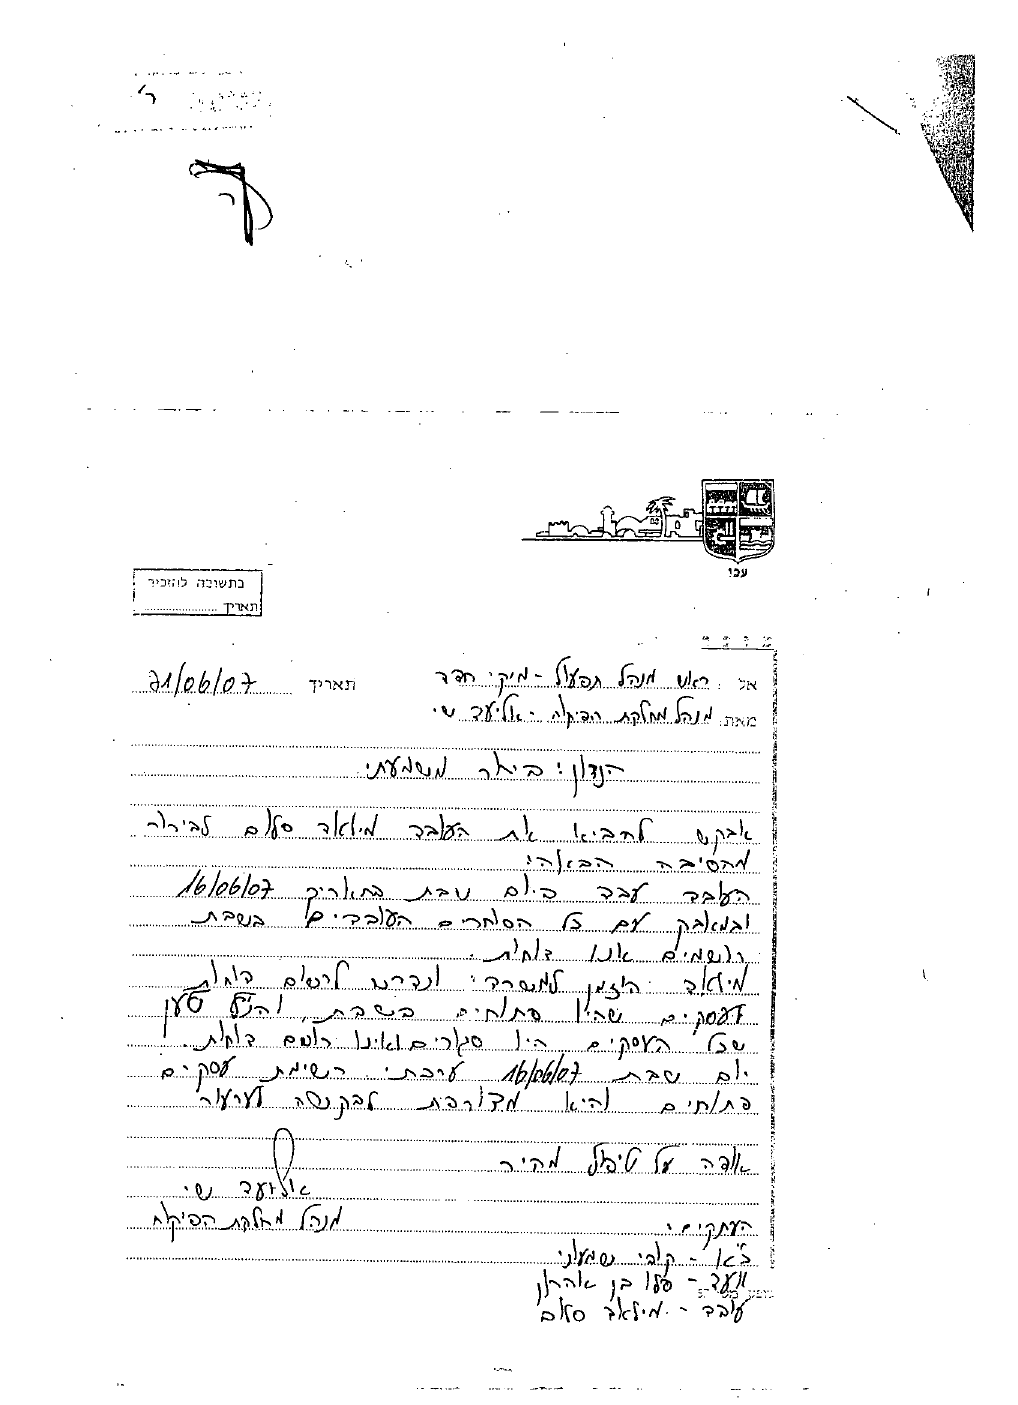 עכו
בתשובה להזכיר
תאריך
אל: ראש מנהל תפעול - מיקי חדד
תאריך 21/06/07
מאת: מנהל מחלקת הפיקוח - אליעד שי
הנדון: בירור משמעתי
אבקש להביא את העובד מילאד סלום לבירור
מהסיבה הבאה:
העובד עבד ביום שבת בתאריך 16/06/07
ובמאבק עם כל הסוחרים העובדים בשבת
רושמים אנו דוחות.
מילאד הוזמן למשרדי ונדרש לרשום דוחות
לעסקים שהיו פתוחים בשבת, והנ"ל טען
שכל העסקים היו סגורים ואינו רושם דוחות.
יום שבת 16/06/07 ערכתי רשימת עסקים
פתוחים והיא מצורפת לבקשה לערעור
אודה על טיפול מהיר
אליעד שי
מנהל מחלקת הפיקוח
העתקים:
כ"א - קובי שמעוני
וועד - בן אהרון
עובד - מילאד סלום